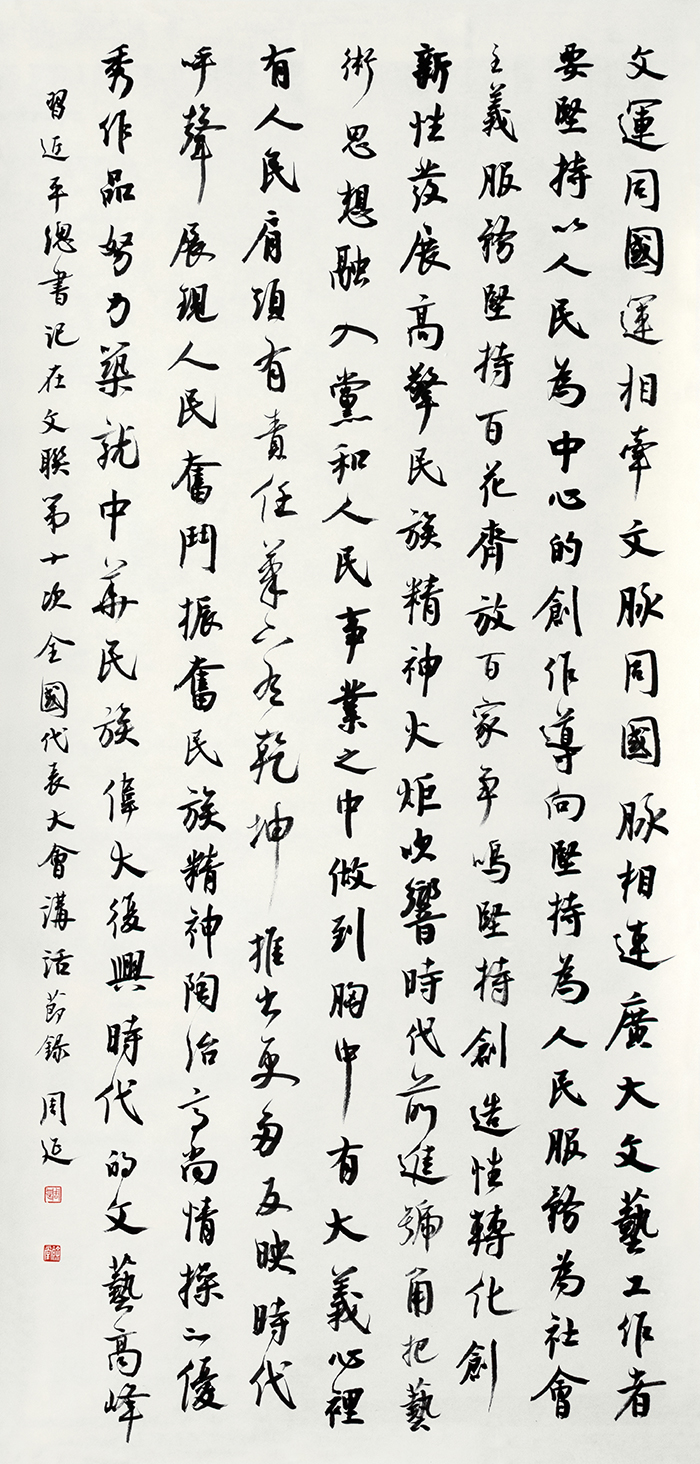 文運同國運相牽文脉同國脉相連廣大文藝工作者
要堅持以人民為中心的創作導向堅持為人民服務為社會
主義服務堅持百花齊放百家爭鳴堅持創造性轉化創
新性發展高擎民族精神火炬吹響時代前進號角把藝
術思想融入黨和人民事業之中做到胸中有大義心裡
有人民肩頭有責任筆下有乾坤推出更多反映時代
呼聲展現人民奮鬥振奮民族精神陶冶高尚情操之優
秀作品努力築就中華民族偉大復興時代的文藝高峰
習近平總書記在文聯第十次全國代表大會講話節錄 周延